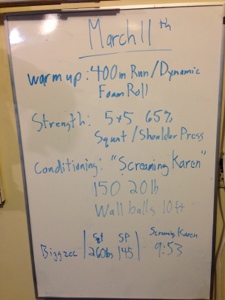 March 11th
warmup: 400m Run/Dynamic
Foam Roll
Strength: 5x5 65%
Squat/Shoulder Press
Conditioning: "Screaming Karen"
150 20lb
Wall balls 10ft
SP Screaming Karen
260lbs 145 9:53